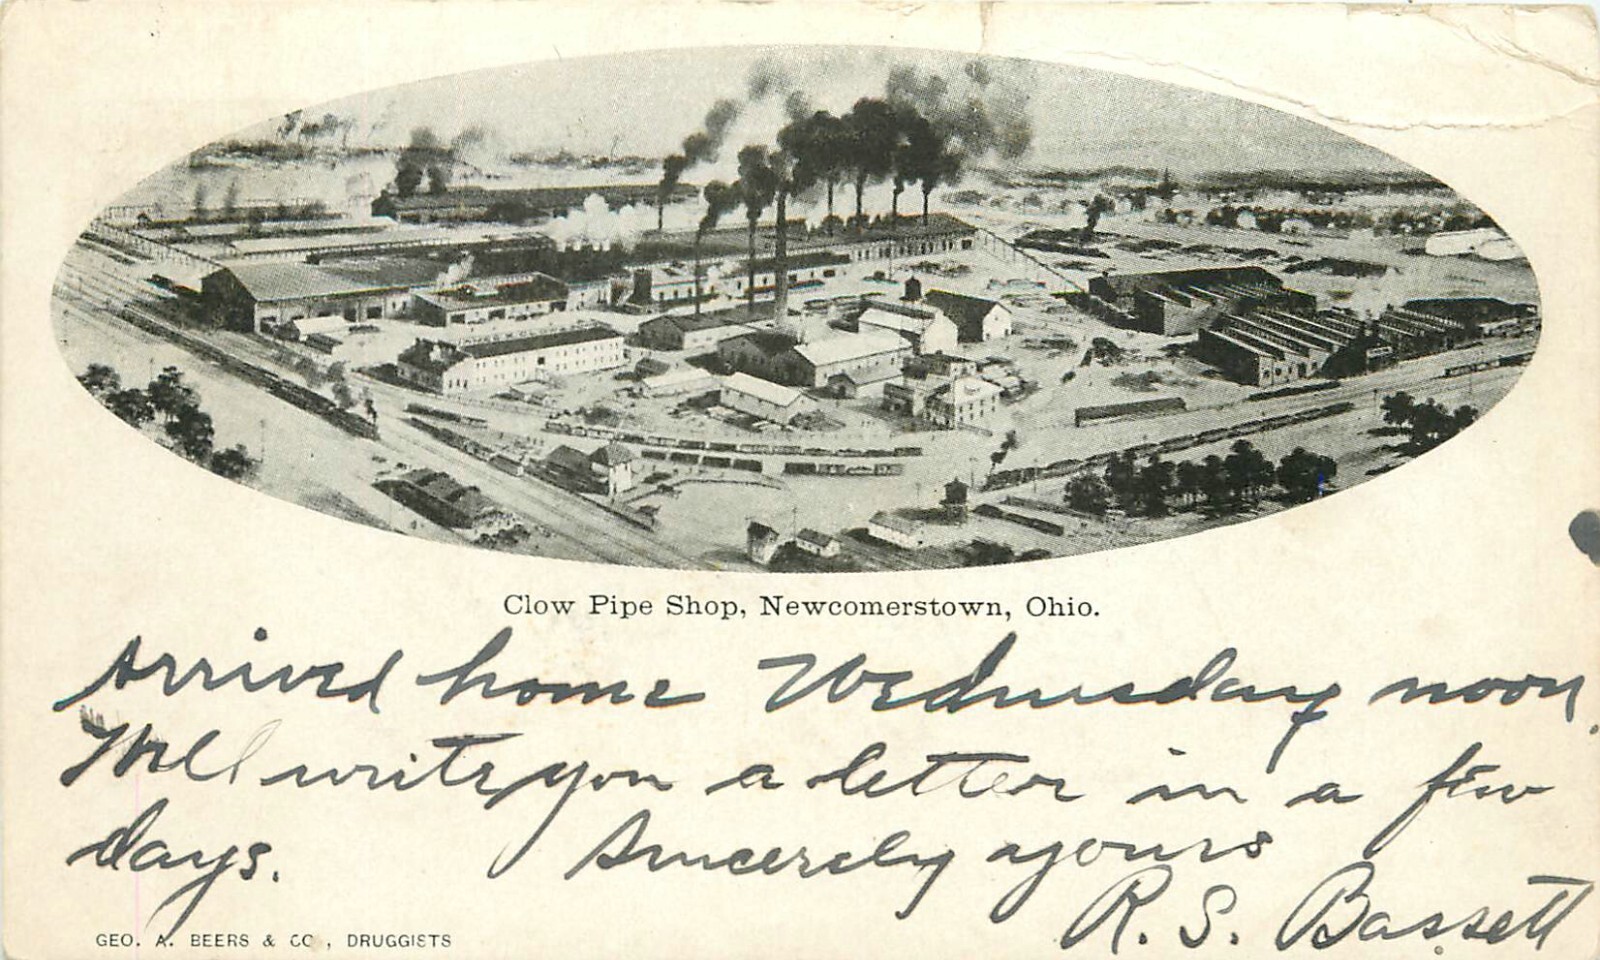 Clow Pipe Shop, Newcomerstown, Ohio.
Arrived home Wednesday noon.
Will write you a letter in a few
days. Sincerely yours
R. S. Bassett
GEO. A. BEERS & CO., DRUGGISTS